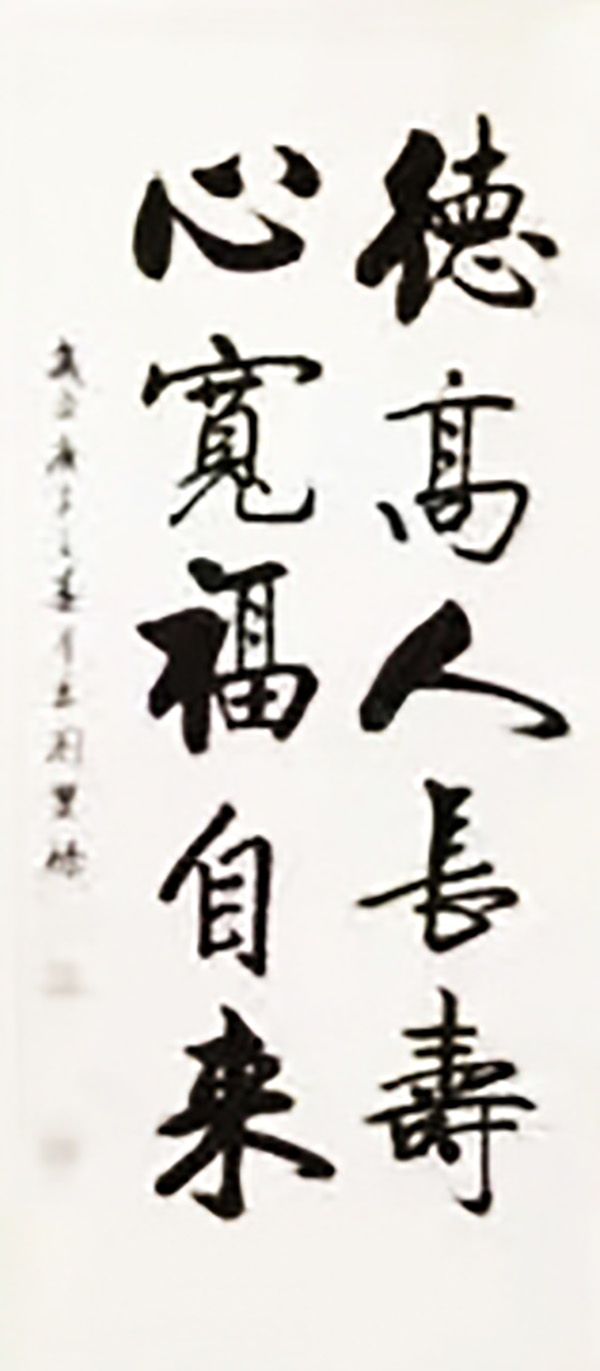 德高人長壽
心寬福自来